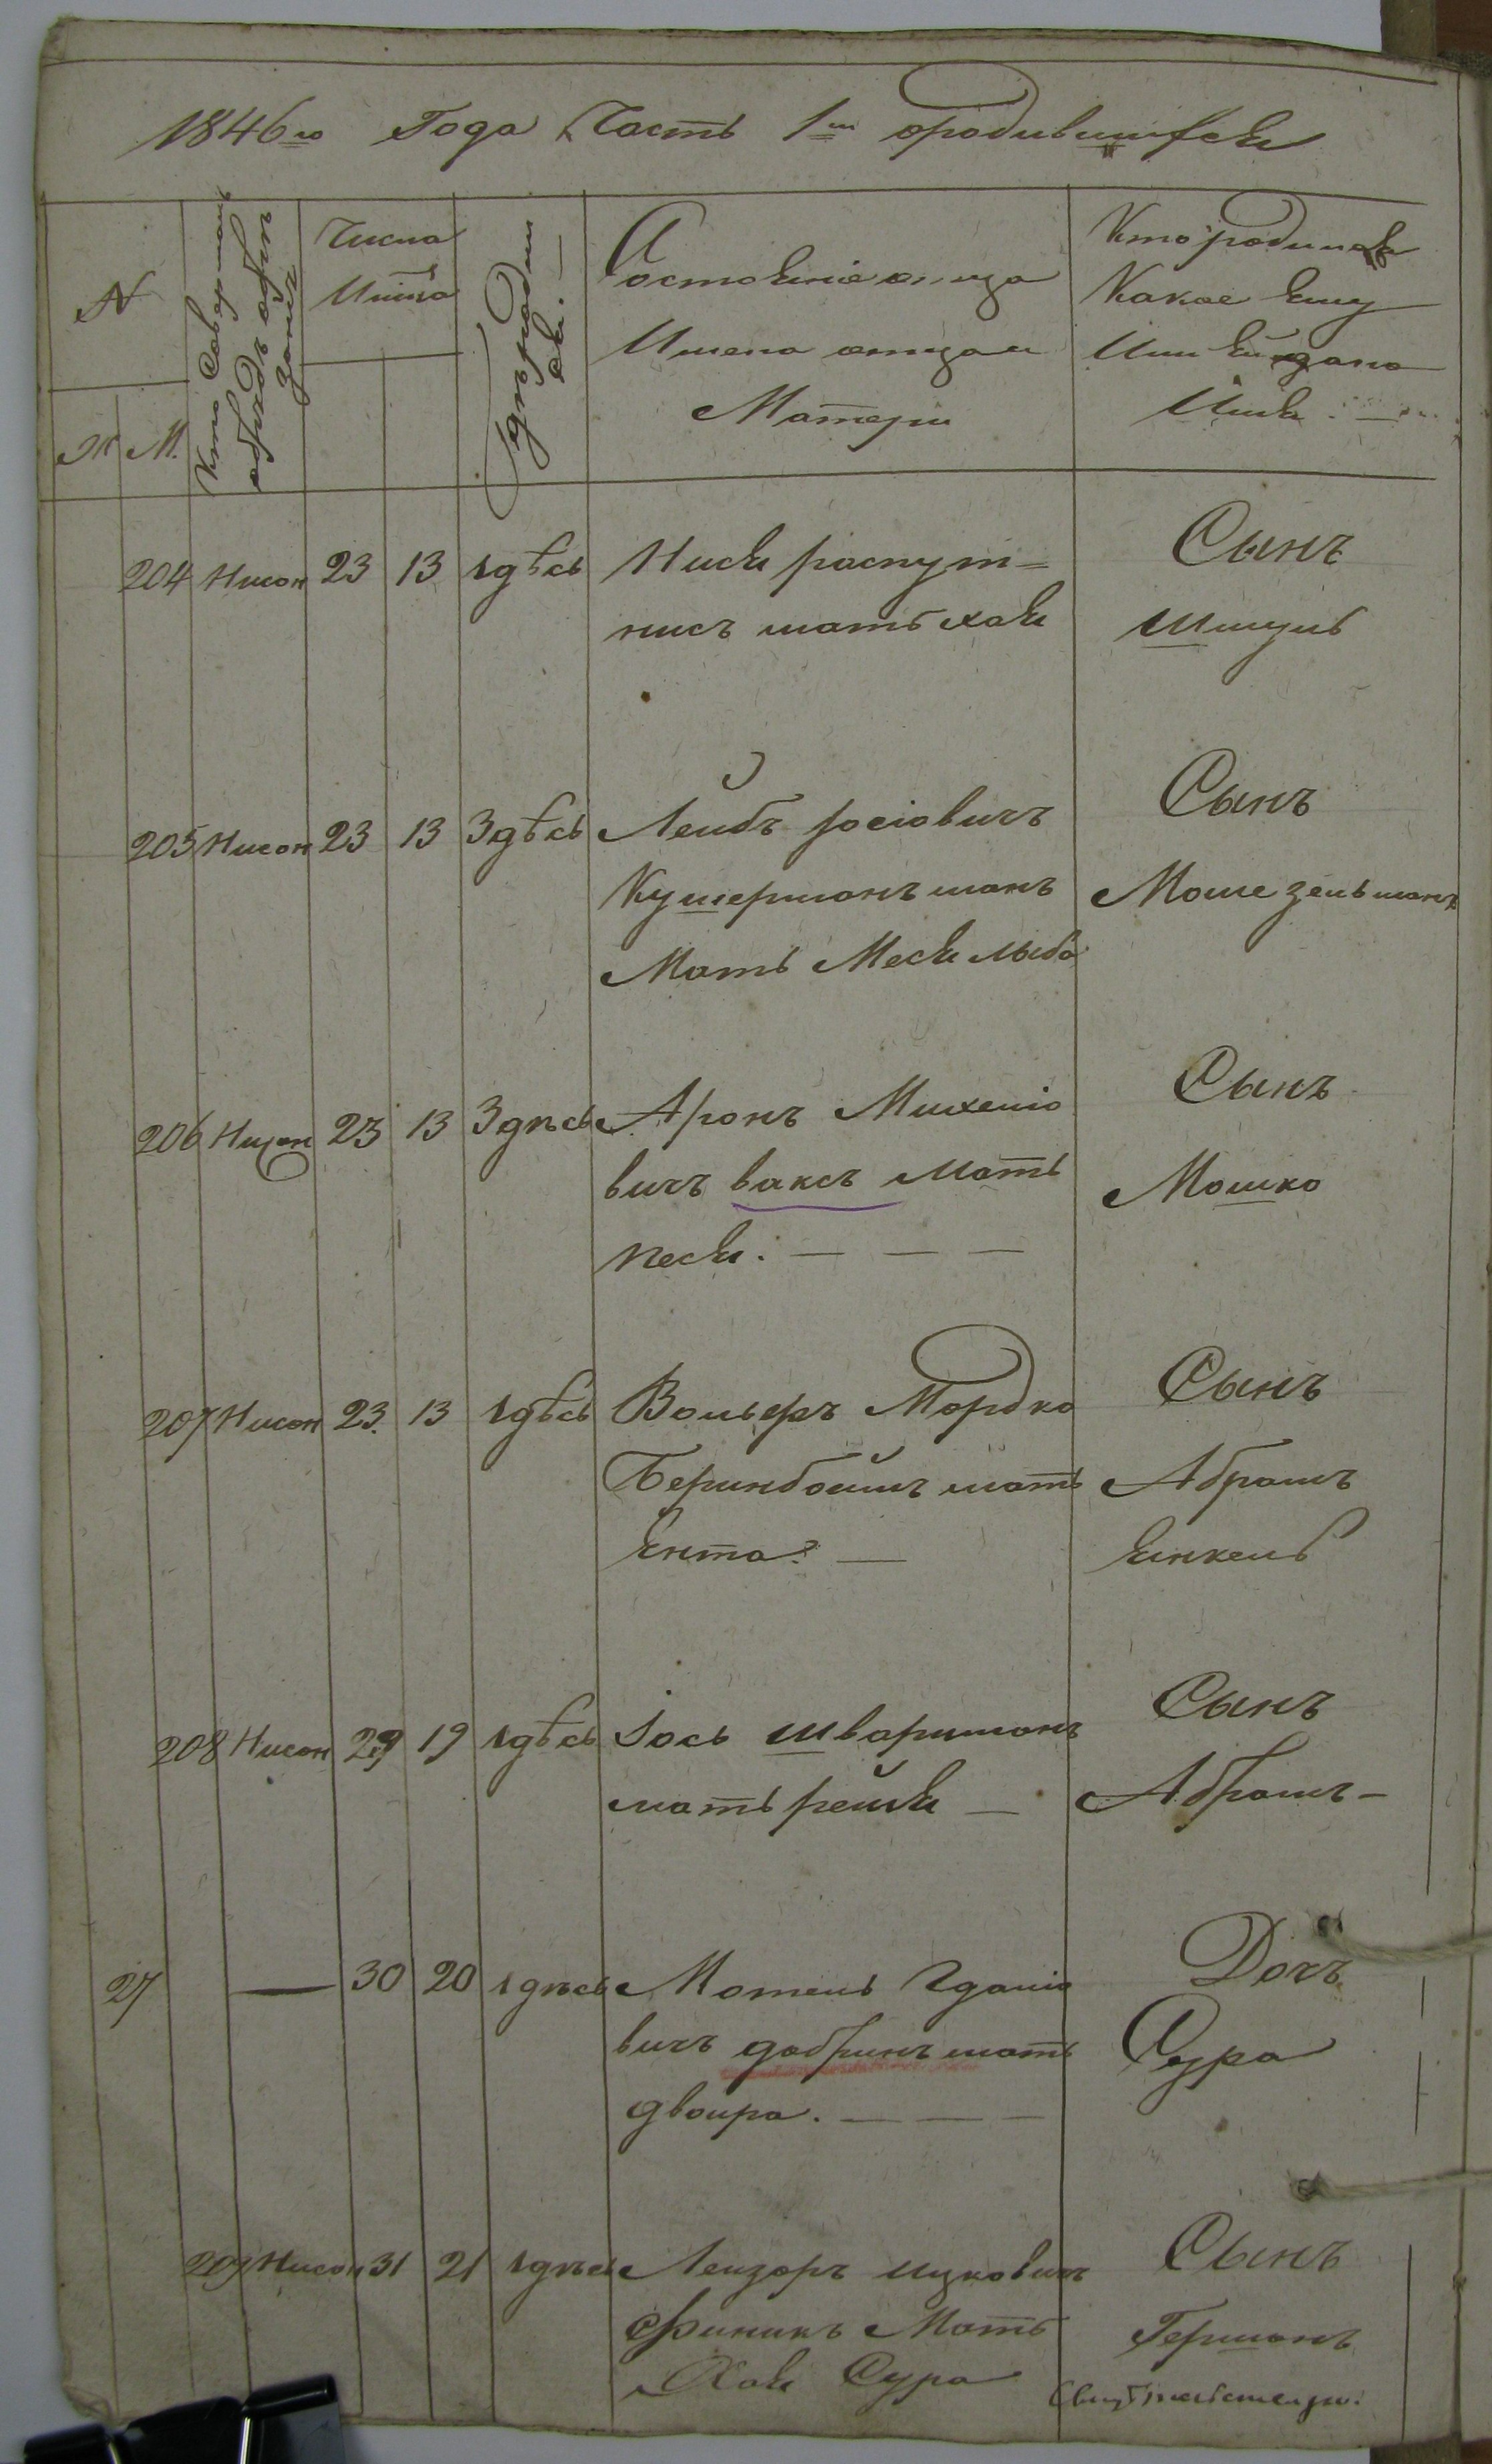 1846го Года Часть 1ая ородившихся
N
Ж М.
Кто Совершалъ
обрядъ обрѣ
занія
Числа
И мца
Гдѣ родил
ся. —
Состояніе отца
Имена отца и
Матери
Кто родился
Какое ему
Или ей дано
Имя. —
204 Нисон 23 13 здѣсь Нися распут=
нисъ мать хая
Сынъ
Шмуль
205 Нисон 23 13 Здѣсь Лейбъ
Кушерманъ
Мать Меся лыба
Сынъ
Моше зельманъ
206 Нисон 23 13 Здѣсь Аронъ Михелiо
вичъ ваксъ Мать
песя. — — —
Сынъ
Мошко
207 Нисон 23. 13 здѣсь Вольфъ Мордко
Беринбоймъ мать
Ента. —
Сынъ
Абрамъ
Янкель
208 Нисон 29 19 здѣсь Iось шварцманъ
мать рейзя —
Сынъ
Абрамъ —
27 — 30 20 здѣсь Мотель Гдалiо
вичъ добринъ мать
двоира. — — —
Дочъ
Сура
209 Нисон 31 21 здѣсь Лейзоръ ицковичъ
Финикъ Мать
Хая Сура
Сынъ
Германъ